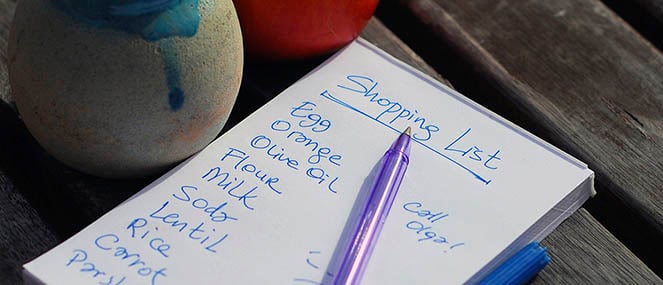 Shopping List
Egg
Orange
Olive Oil
Flour
Milk
Soda
Lentil
Rice
Carrot
Call
Olga!